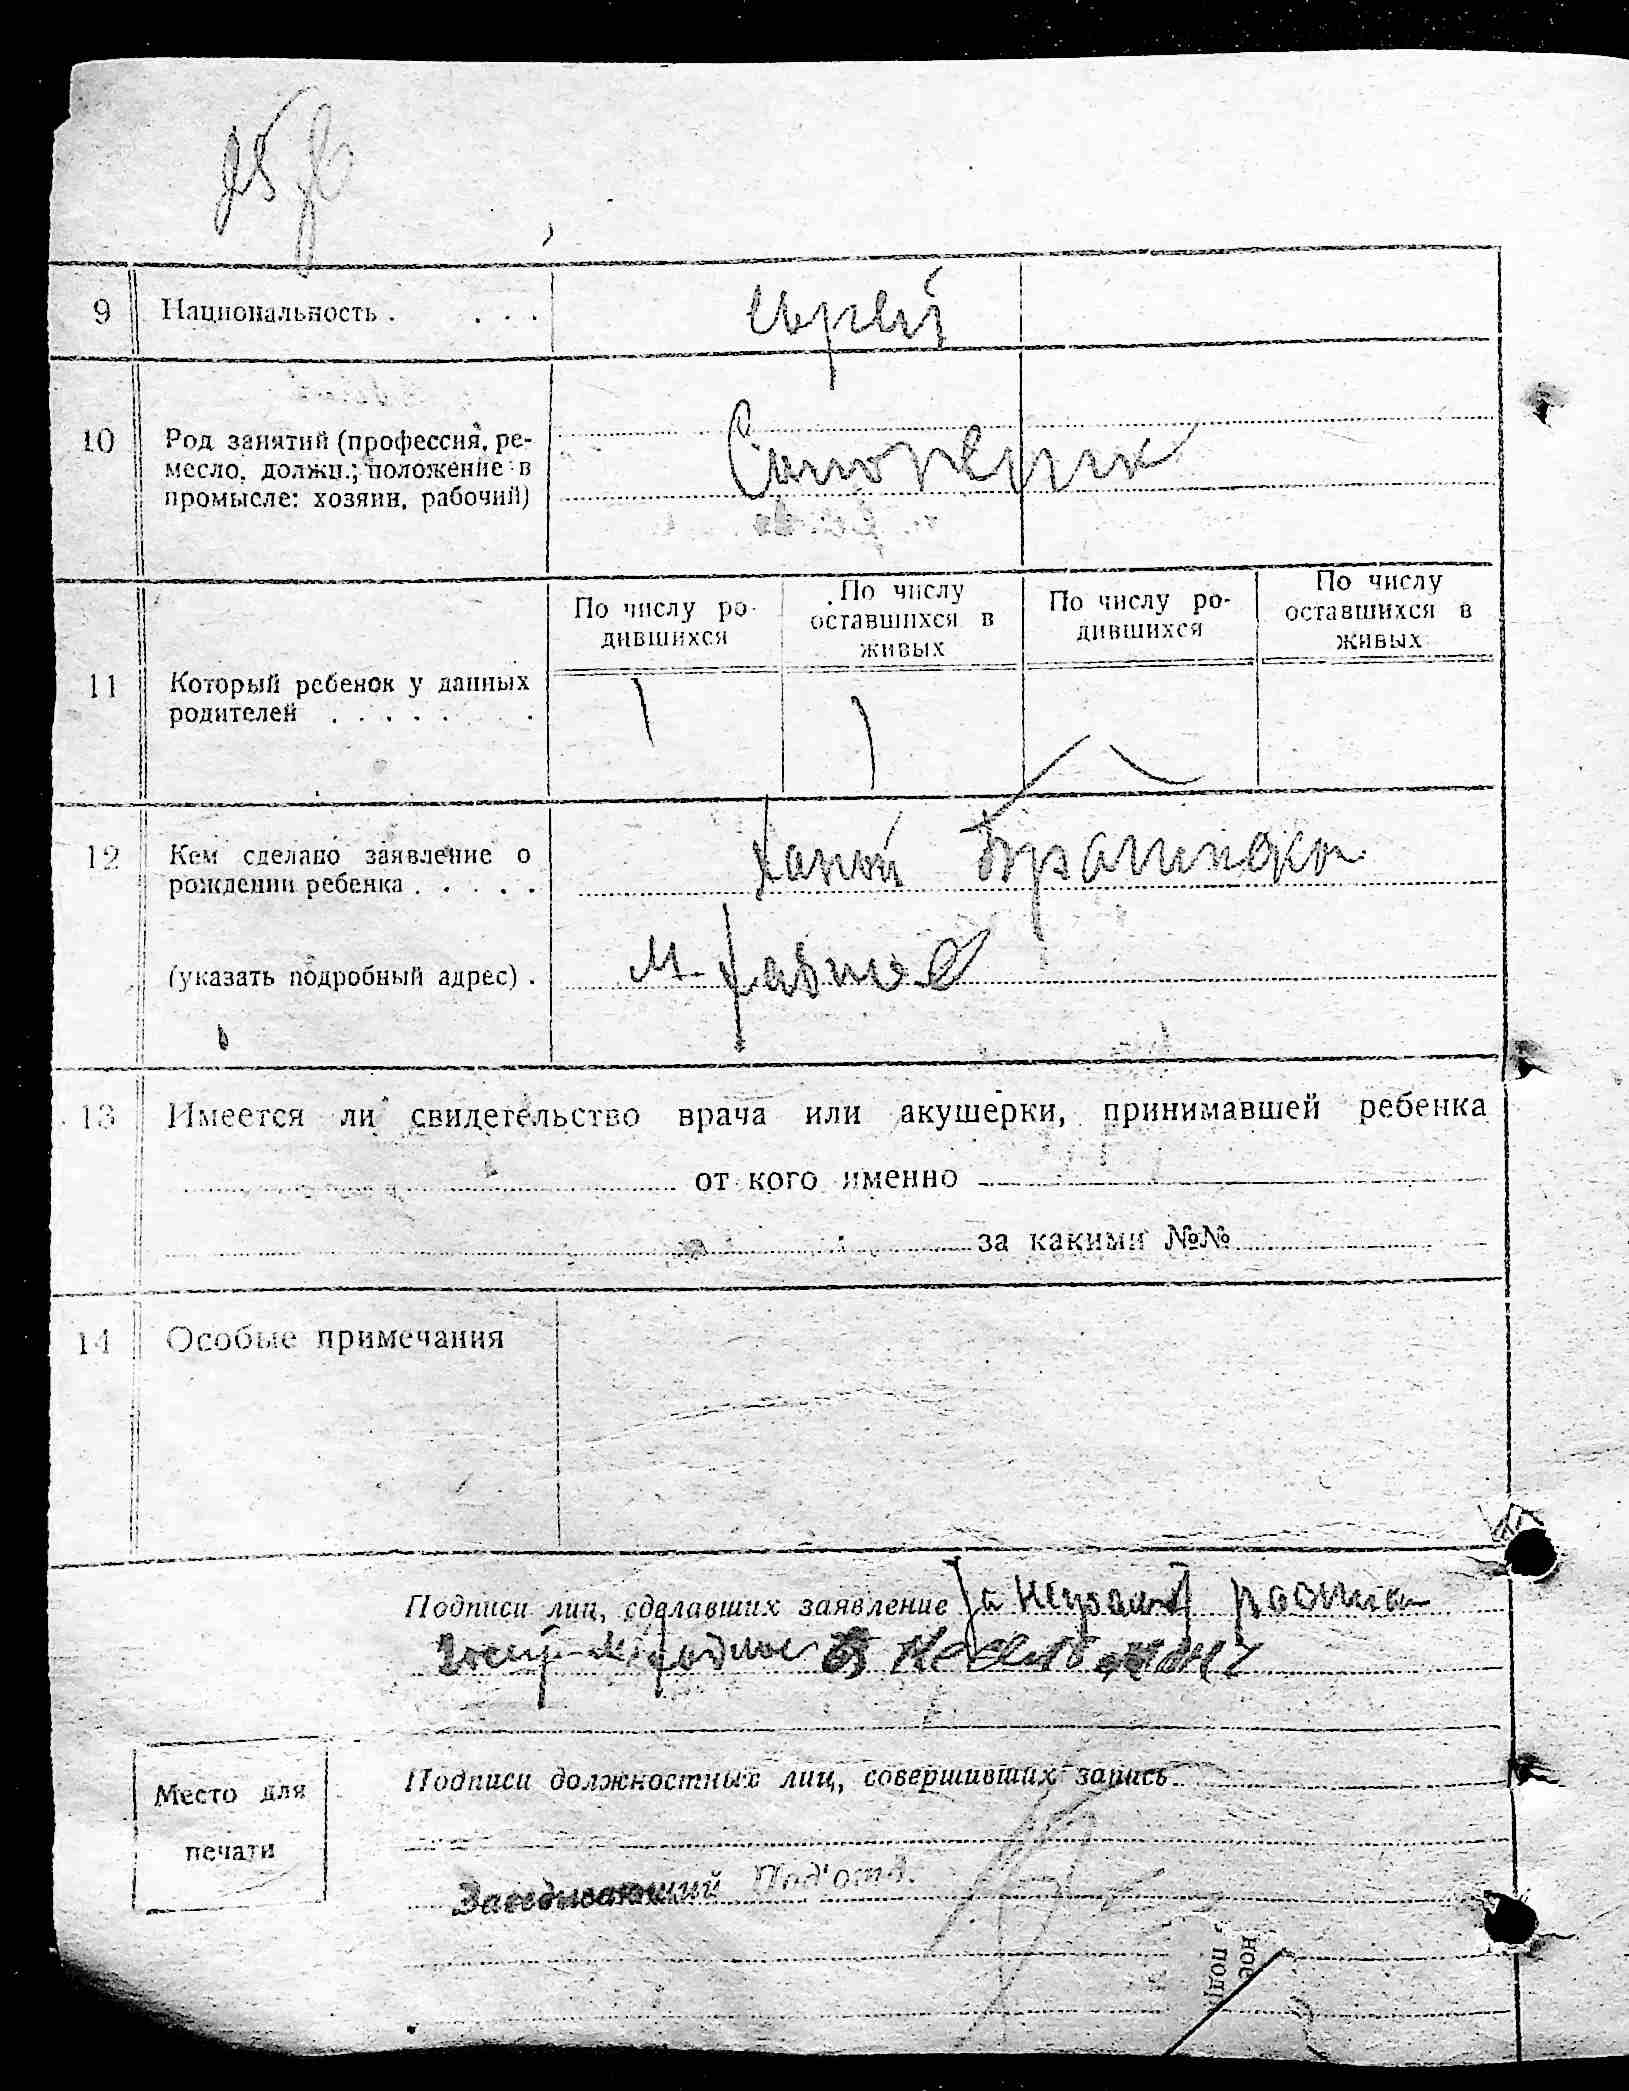 9 Национальность . . . . еврей
10 Род занятий (профессия, ре-
месло, должн.; положение в
промысле: хозяин, рабочий)
По числу ро-
дившихся
По числу
оставшихся в
живых
По числу ро-
дившихся
По числу
оставшихся в
живых
11 Который ребенок у данных
родителей . . . . . .
1 1
12 Кем сделано заявление о
рождении ребенка . . . . .
(указать подробный адрес) . м.
13 Имеется ли свидетельство врача или акушерки, принимавшей ребенка
от кого именно
за какими №№
14 Особые примечания
Подписи лиц, сделавших заявление За неграмот
Место для
печати
Подписи должностных лиц, совершивших запись
Заведывающий Под'отд.
ное
под